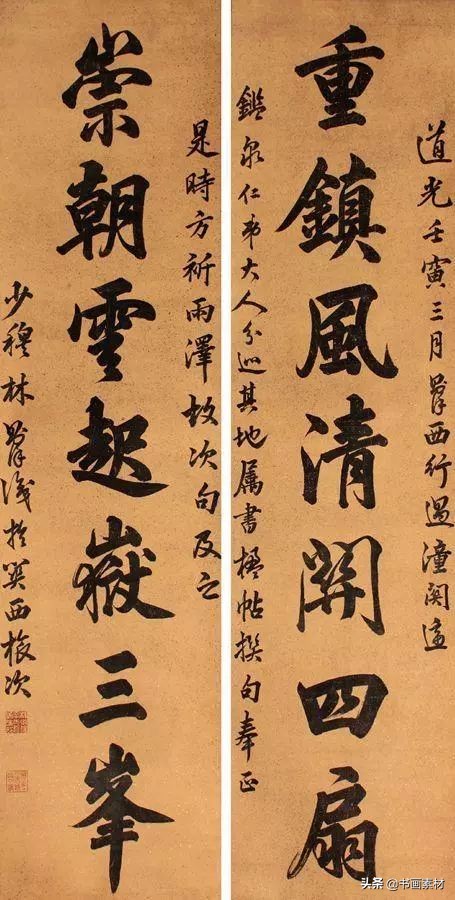 道光壬寅三月則徐西行過潼關適
重鎮風清關四扇
鑑泉仁弟大人分巡其地屬書楹帖撰句奉正
是時方祈雨澤故次句及之
崇朝雲起嶽三峯
少穆林則徐識於關西旅次
头条 @书画素材